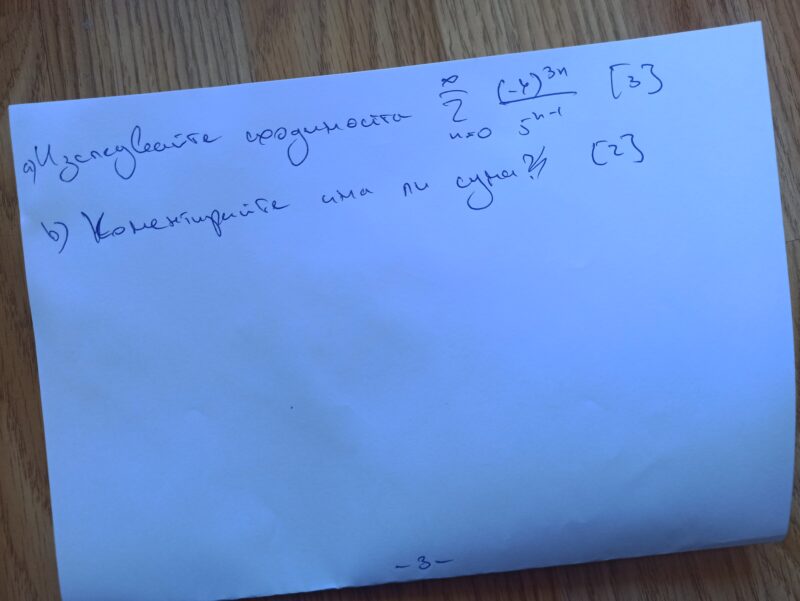 а) Изследвайте сходимостта ∞ Σ n=0 (-4)^3n / 5^n-1 [3]
b) Коментирайте има ли сума? [2]
-3-